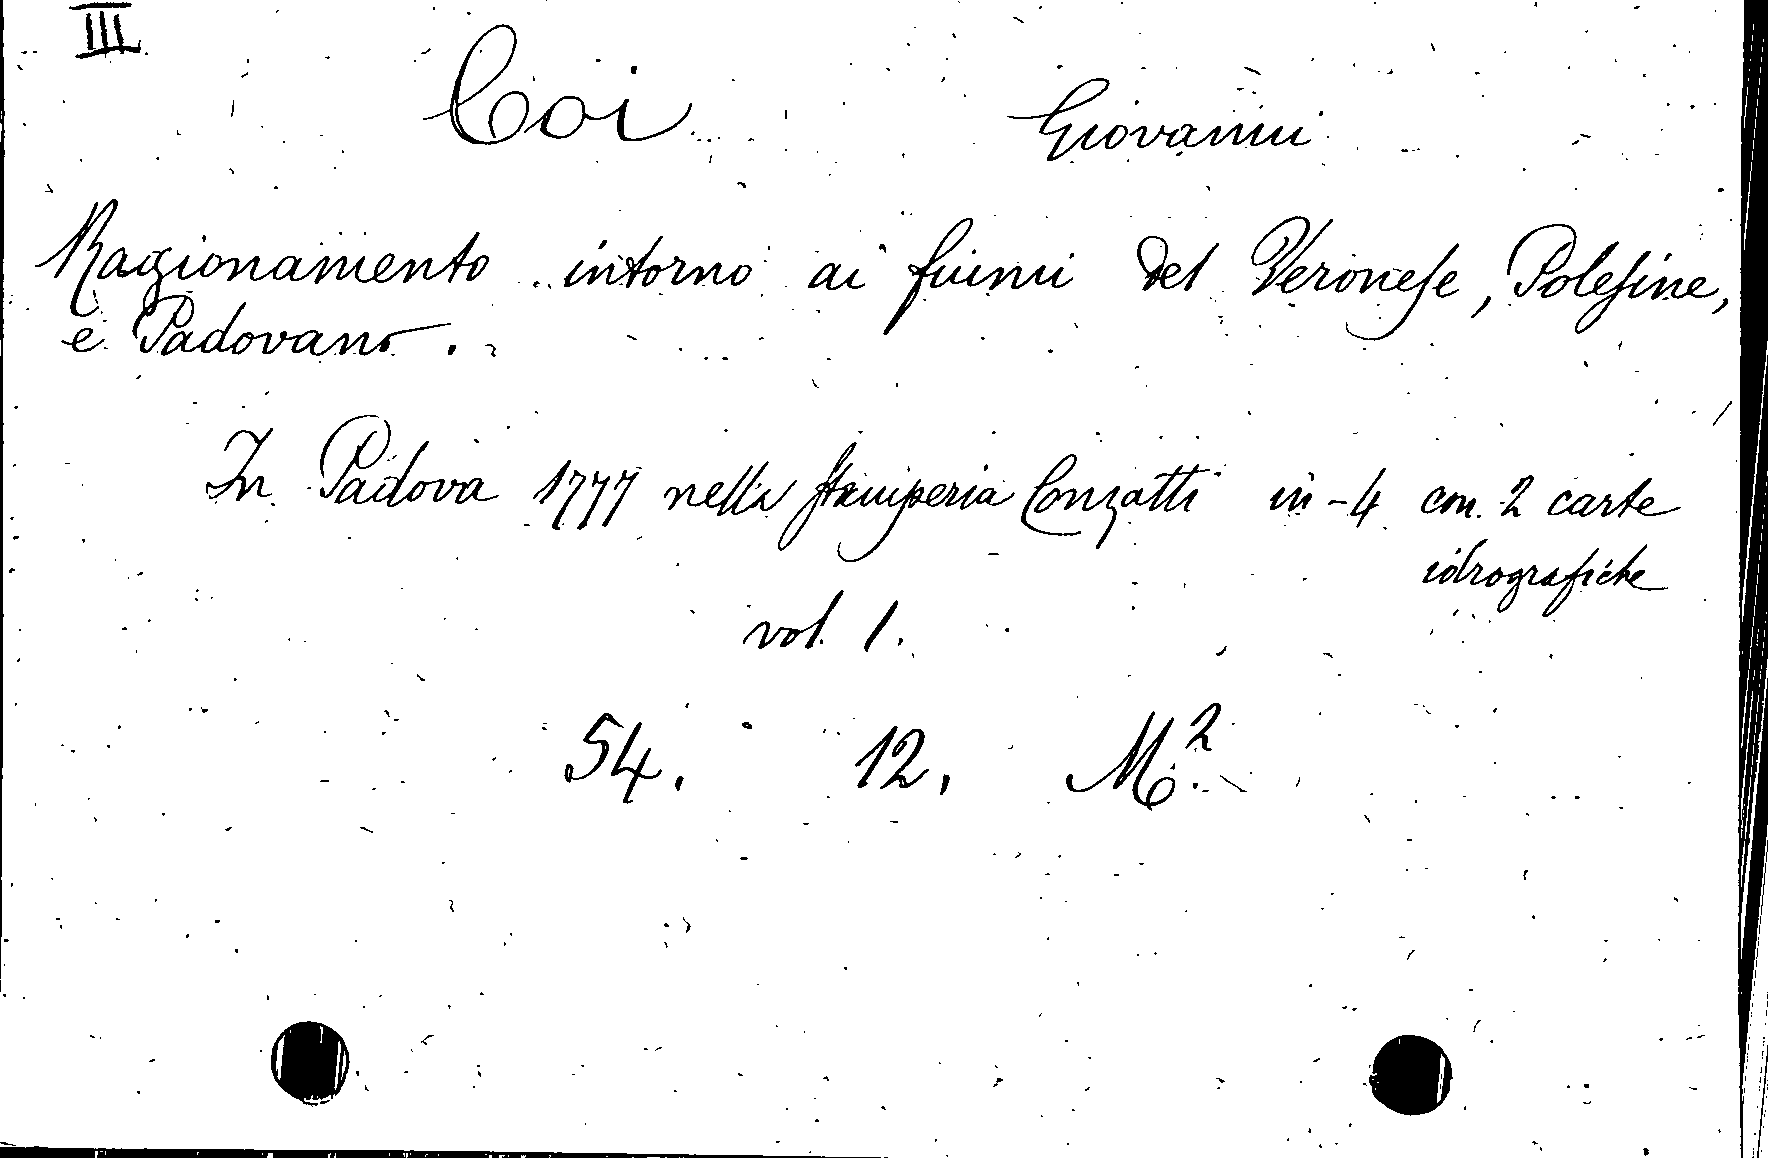 III
Coi Giovanni
Ragionamento intorno ai fiumi del Veronese, Polesine,
e Padovano.
In Padova 1777 nella stamperia Conzatti in-4 con 2 carte
idrografiche
vol. 1.
54. 12. M.2